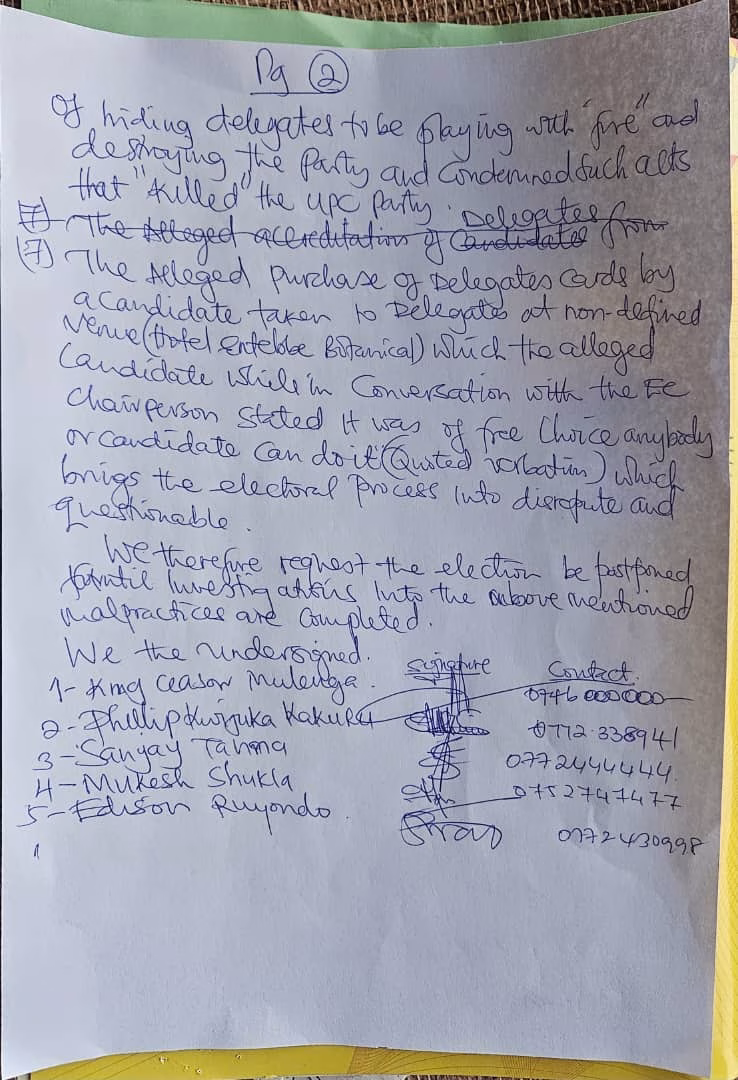 Pg 2
Of hiding delegates to be playing with "fire" and
destroying the Party and Condemned such acts
that "killed" the UPC party.
(7) The Alleged accreditation of Candidates Delegates from
(7) The Alleged purchase of Delegates cards by
a candidate taken to Delegates at non-defined
venue (Hotel Entebbe Botanical) which the alleged
Candidate while in Conversation with the EC
Chairperson stated it was of free Choice anybody
or candidate can do it (Quoted verbatim) which
brings the electoral process into disrepute and
questionable.
We therefore request the election be postponed
until Investigations into the above mentioned
malpractices are completed.
We the undersigned. Signature Contact
1- King Ceasor Mulenga 0746 000000
2- Phillip Kwijuka Kakuru 0712 338941
3- Sanjay Tanna 0772444444
4- Mukesh Shukla 0752747477
5- Edison Ruyondo. 0772430998